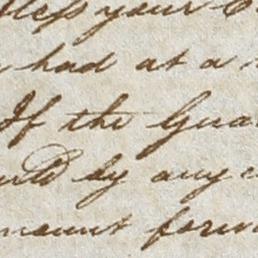 bless your
had at a
If the Guar
by any
mount forw